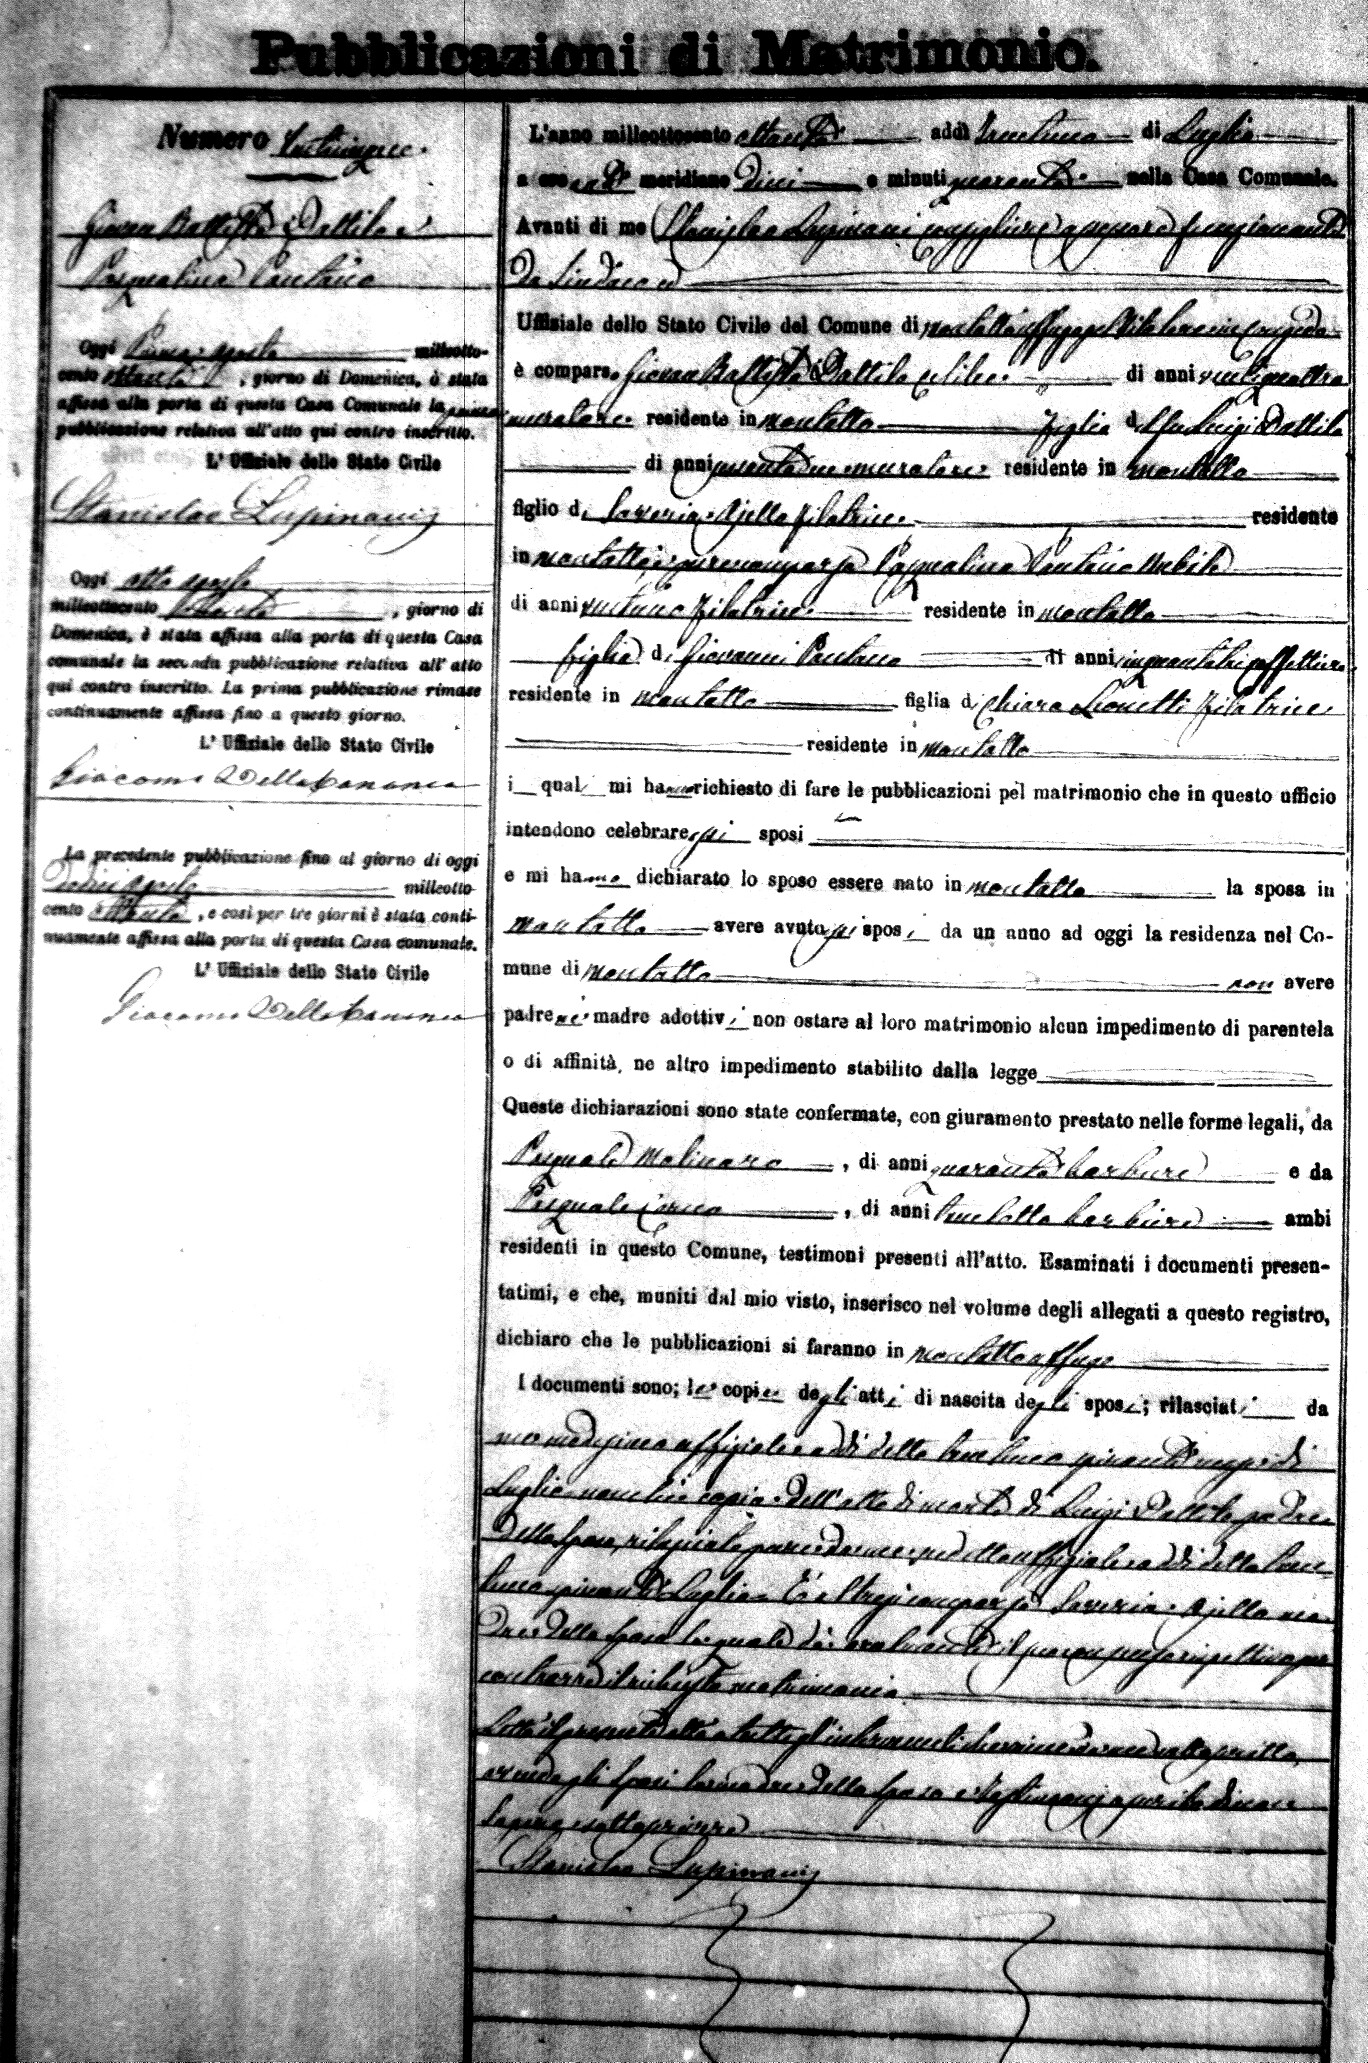 Pubblicazioni di Matrimonio.
Numero Venticinque.
Giovan Battista Dattilo e
Pasqualina
Oggi Primo Agosto millotto-
cento ottanta, giorno di Domenica, è stata
affissa alla porta di questa Casa Comunale la prima
pubblicazione relativa all'atto qui contro inscritto.
L'Uffiziale dello Stato Civile
Stanislao Lupinacci
Oggi otto Agosto
milleottocento ottanta, giorno di
Domenica, è stata affissa alla porta di questa Casa
comunale la seconda pubblicazione relativa all'atto
qui contro inscritto. La prima pubblicazione rimase
continuamente affissa fino a questo giorno.
L'Uffiziale dello Stato Civile
Giacomo Della Cananea
La precedente pubblicazione fino al giorno di oggi
Dodici Agosto milleotto
cento ottanta, e così per tre giorni è stata conti-
nuamente affissa alla porta di questa Casa comunale.
L'Uffiziale dello Stato Civile
Giacomo Della Cananea
L'anno milleottocento ottanta addì trentuno di Luglio
a ore anti meridiane dieci e minuti quaranta nella Casa Comunale.
Avanti di me Stanislao Lupinacci consigliere funzionante
da Sindaco ed
Uffiziale dello Stato Civile del Comune di Montalto Uffugo
è comparso Giovan Battista Dattilo celibe di anni ventiquattro
muratore residente in Montalto figlio di fu Luigi Dattilo
di anni muratore residente in Montalto
figlio di Saveria Ajello filatrice residente
in Montalto, è pure comparsa Pasqualina nubile
di anni ventuno filatrice residente in Montalto
figlia di Giovanni di anni cinquantatre
residente in Montalto figlia di Chiara Leonetti filatrice
residente in Montalto
i quali mi hanno richiesto di fare le pubblicazioni pel matrimonio che in questo ufficio
intendono celebrare essi sposi
e mi hanno dichiarato lo sposo essere nato in Montalto la sposa in
Montalto avere avuto essi sposi da un anno ad oggi la residenza nel Co-
mune di Montalto non avere
padre nè madre adottivi non ostare al loro matrimonio alcun impedimento di parentela
o di affinità, ne altro impedimento stabilito dalla legge
Queste dichiarazioni sono state confermate, con giuramento prestato nelle forme legali, da
Pasquale Molinaro, di anni quaranta barbiere e da
Pasquale, di anni trentotto barbiere ambi
residenti in questo Comune, testimoni presenti all'atto. Esaminati i documenti presen-
tatimi, e che, muniti dal mio visto, inserisco nel volume degli allegati a questo registro,
dichiaro che le pubblicazioni si faranno in Montalto Uffugo
I documenti sono; le copie degli atti di nascita degli sposi; rilasciati da
me medesimo uffiziale addì detto trentuno spirante mese di
Luglio, nonchè copia dell'atto di morte di Luigi Dattilo padre
dello sposo, rilasciata pure da me suddetto uffiziale addì detto tren-
tuno spirante Luglio. È altresì comparsa Saveria Ajello ma-
dre dello sposo la quale dà oralmente il suo consenso per
contrarre il richiesto matrimonio.
Letto il presente atto a tutti gl'intervenuti
avendo gli sposi la madre dello sposo e testimoni di non
sapere sottoscrivere
Stanislao Lupinacci